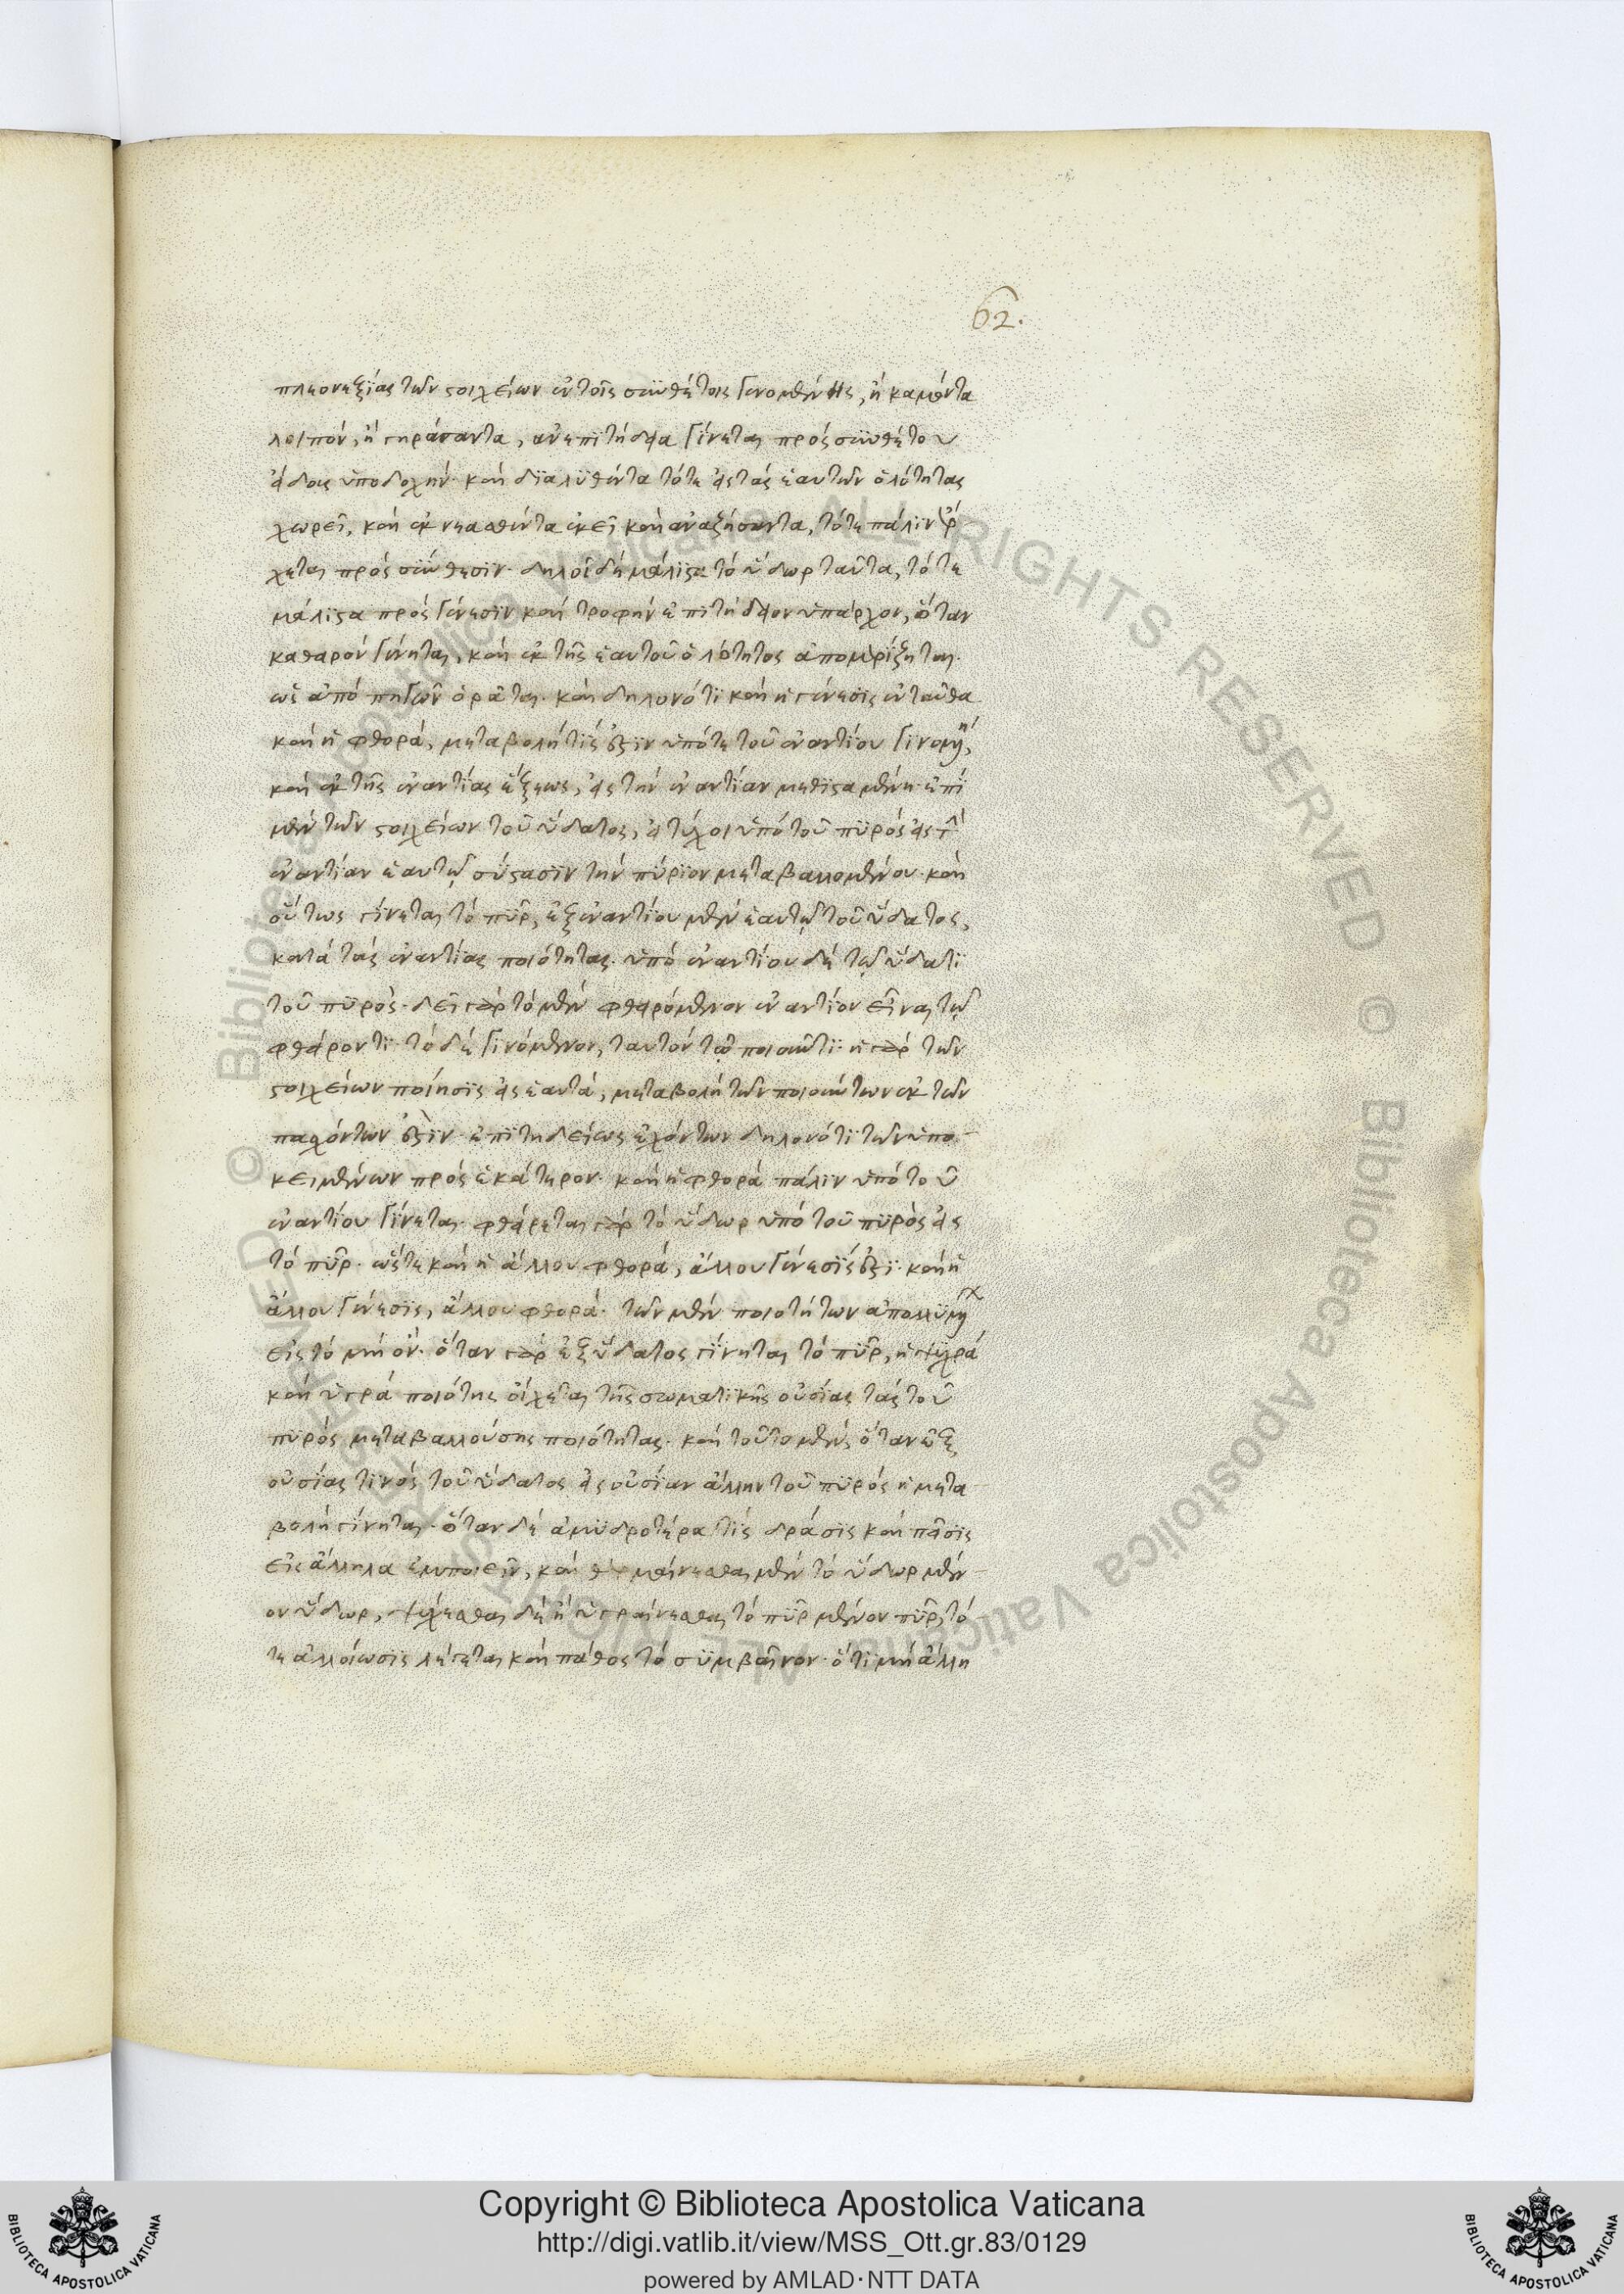 62.
πλεονεξίας τῶν στοιχείων ἐν τοῖς συνθέτοις γινομένης, ἢ καμόντα
λοιπόν, ἢ γηράσαντα, ἀνεπιτήδεια γίνεται πρὸς συνθέτου
εἴδους ὑποδοχήν· καὶ διαλυθέντα τότε εἰς τὰς ἑαυτῶν ὁλότητας
χωρεῖ, καὶ ἐκνεασθέντα ἐκεῖ καὶ ἀναζήσαντα, τότε πάλιν ἔρ
χεται πρὸς σύνθεσιν· δηλοῖ δὲ μάλιστα τὸ ὕδωρ ταῦτα, τότε
μάλιστα πρὸς γένεσιν καὶ τροφὴν ἐπιτήδειον ὑπάρχον, ὅταν
καθαρὸν γένηται, καὶ ἐκ τῆς ἑαυτοῦ ὁλότητος ἀπομερίζηται·
ὡς ἀπὸ πηγῶν ὁρᾶται· καὶ δηλονότι καὶ ἡ γένεσις ἐνταῦθα
καὶ ἡ φθορά, μεταβολή τίς ἐστιν ὑπό τε τοῦ ἐναντίου γινομένη,
καὶ ἐκ τῆς ἐναντίας ἕξεως, εἰς τὴν ἐναντίαν μεθισταμένη· ἐπὶ
μὲν τῶν στοιχείων τοῦ ὕδατος, εἰ τύχοι ὑπὸ τοῦ πυρὸς εἰς τὴν
ἐναντίαν ἑαυτῷ σύστασιν τὴν πύριον μεταβαλλομένου· καὶ
οὕτως γίνεται τὸ πῦρ, ἐξ ἐναντίου μὲν ἑαυτῷ τοῦ ὕδατος,
κατὰ τὰς ἐναντίας ποιότητας· ὑπὸ ἐναντίου δὲ τῷ ὕδατι
τοῦ πυρός· δεῖ γὰρ τὸ μὲν φθειρόμενον ἐναντίον εἶναι τῷ
φθείροντι· τὸ δὲ γινόμενον, ταυτὸν τῷ ποιοῦντι· ἡ γὰρ τῶν
στοιχείων ποίησις εἰς ἑαυτά, μεταβολὴ τῶν ποιούντων ἐκ τῶν
πασχόντων ἐστὶν· ἐπιτηδείως ἐχόντων δηλονότι τῶν ὑπο-
κειμένων πρὸς ἑκάτερον· καὶ ἡ φθορὰ πάλιν ὑπὸ τοῦ
ἐναντίου γίνεται· φθείρεται γὰρ τὸ ὕδωρ ὑπὸ τοῦ πυρὸς εἰς
τὸ πῦρ· ὥστε καὶ ἡ ἄλλου φθορά, ἄλλου γένεσίς ἐστι· καὶ ἡ
ἄλλου γένεσις, ἄλλου φθορά· τῶν μὲν ποιοτήτων ἀπολλυμένων
εἰς τὸ μὴ ὄν· ὅταν γὰρ ἐξ ὕδατος γίνηται τὸ πῦρ, ἡ ψυχρὰ
καὶ ὑγρὰ ποιότης οἴχεται τῆς σωματικῆς οὐσίας τὰς τοῦ
πυρὸς μεταβαλλούσης ποιότητας· καὶ τοῦτο μέν, ὅταν ἐξ
οὐσίας τινὸς τοῦ ὕδατος εἰς οὐσίαν ἄλλην τοῦ πυρὸς ἡ μετα
βολὴ γίνηται· ὅταν δὲ ἀμυδροτέρα τίς δρᾶσις καὶ πεῖσις
εἰς ἄλληλα ἐμποιεῖν, καὶ θερμαίνεσθαι μὲν τὸ ὕδωρ μέν
ον ὕδωρ, ψύχεσθαι δὲ ἢ ὑγραίνεσθαι τὸ πῦρ μένον πῦρ, τό
τε ἀλλοίωσις λέγεται καὶ πάθος τὸ συμβαῖνον· ὅτι μὴ ἄλλη
Copyright © Biblioteca Apostolica Vaticana
http://digi.vatlib.it/view/MSS_Ott.gr.83/0129
powered by AMLAD·NTT DATA